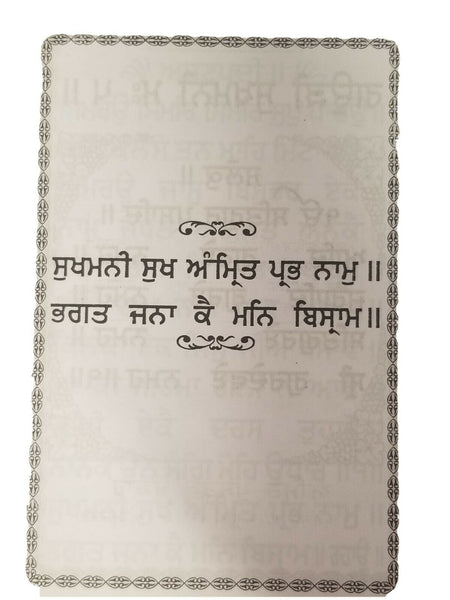 ਸੁਖਮਨੀ ਸੁਖ ਅੰਮ੍ਰਿਤ ਪ੍ਰਭ ਨਾਮੁ ॥
ਭਗਤ ਜਨਾ ਕੈ ਮਨਿ ਬਿਸ੍ਰਾਮ॥